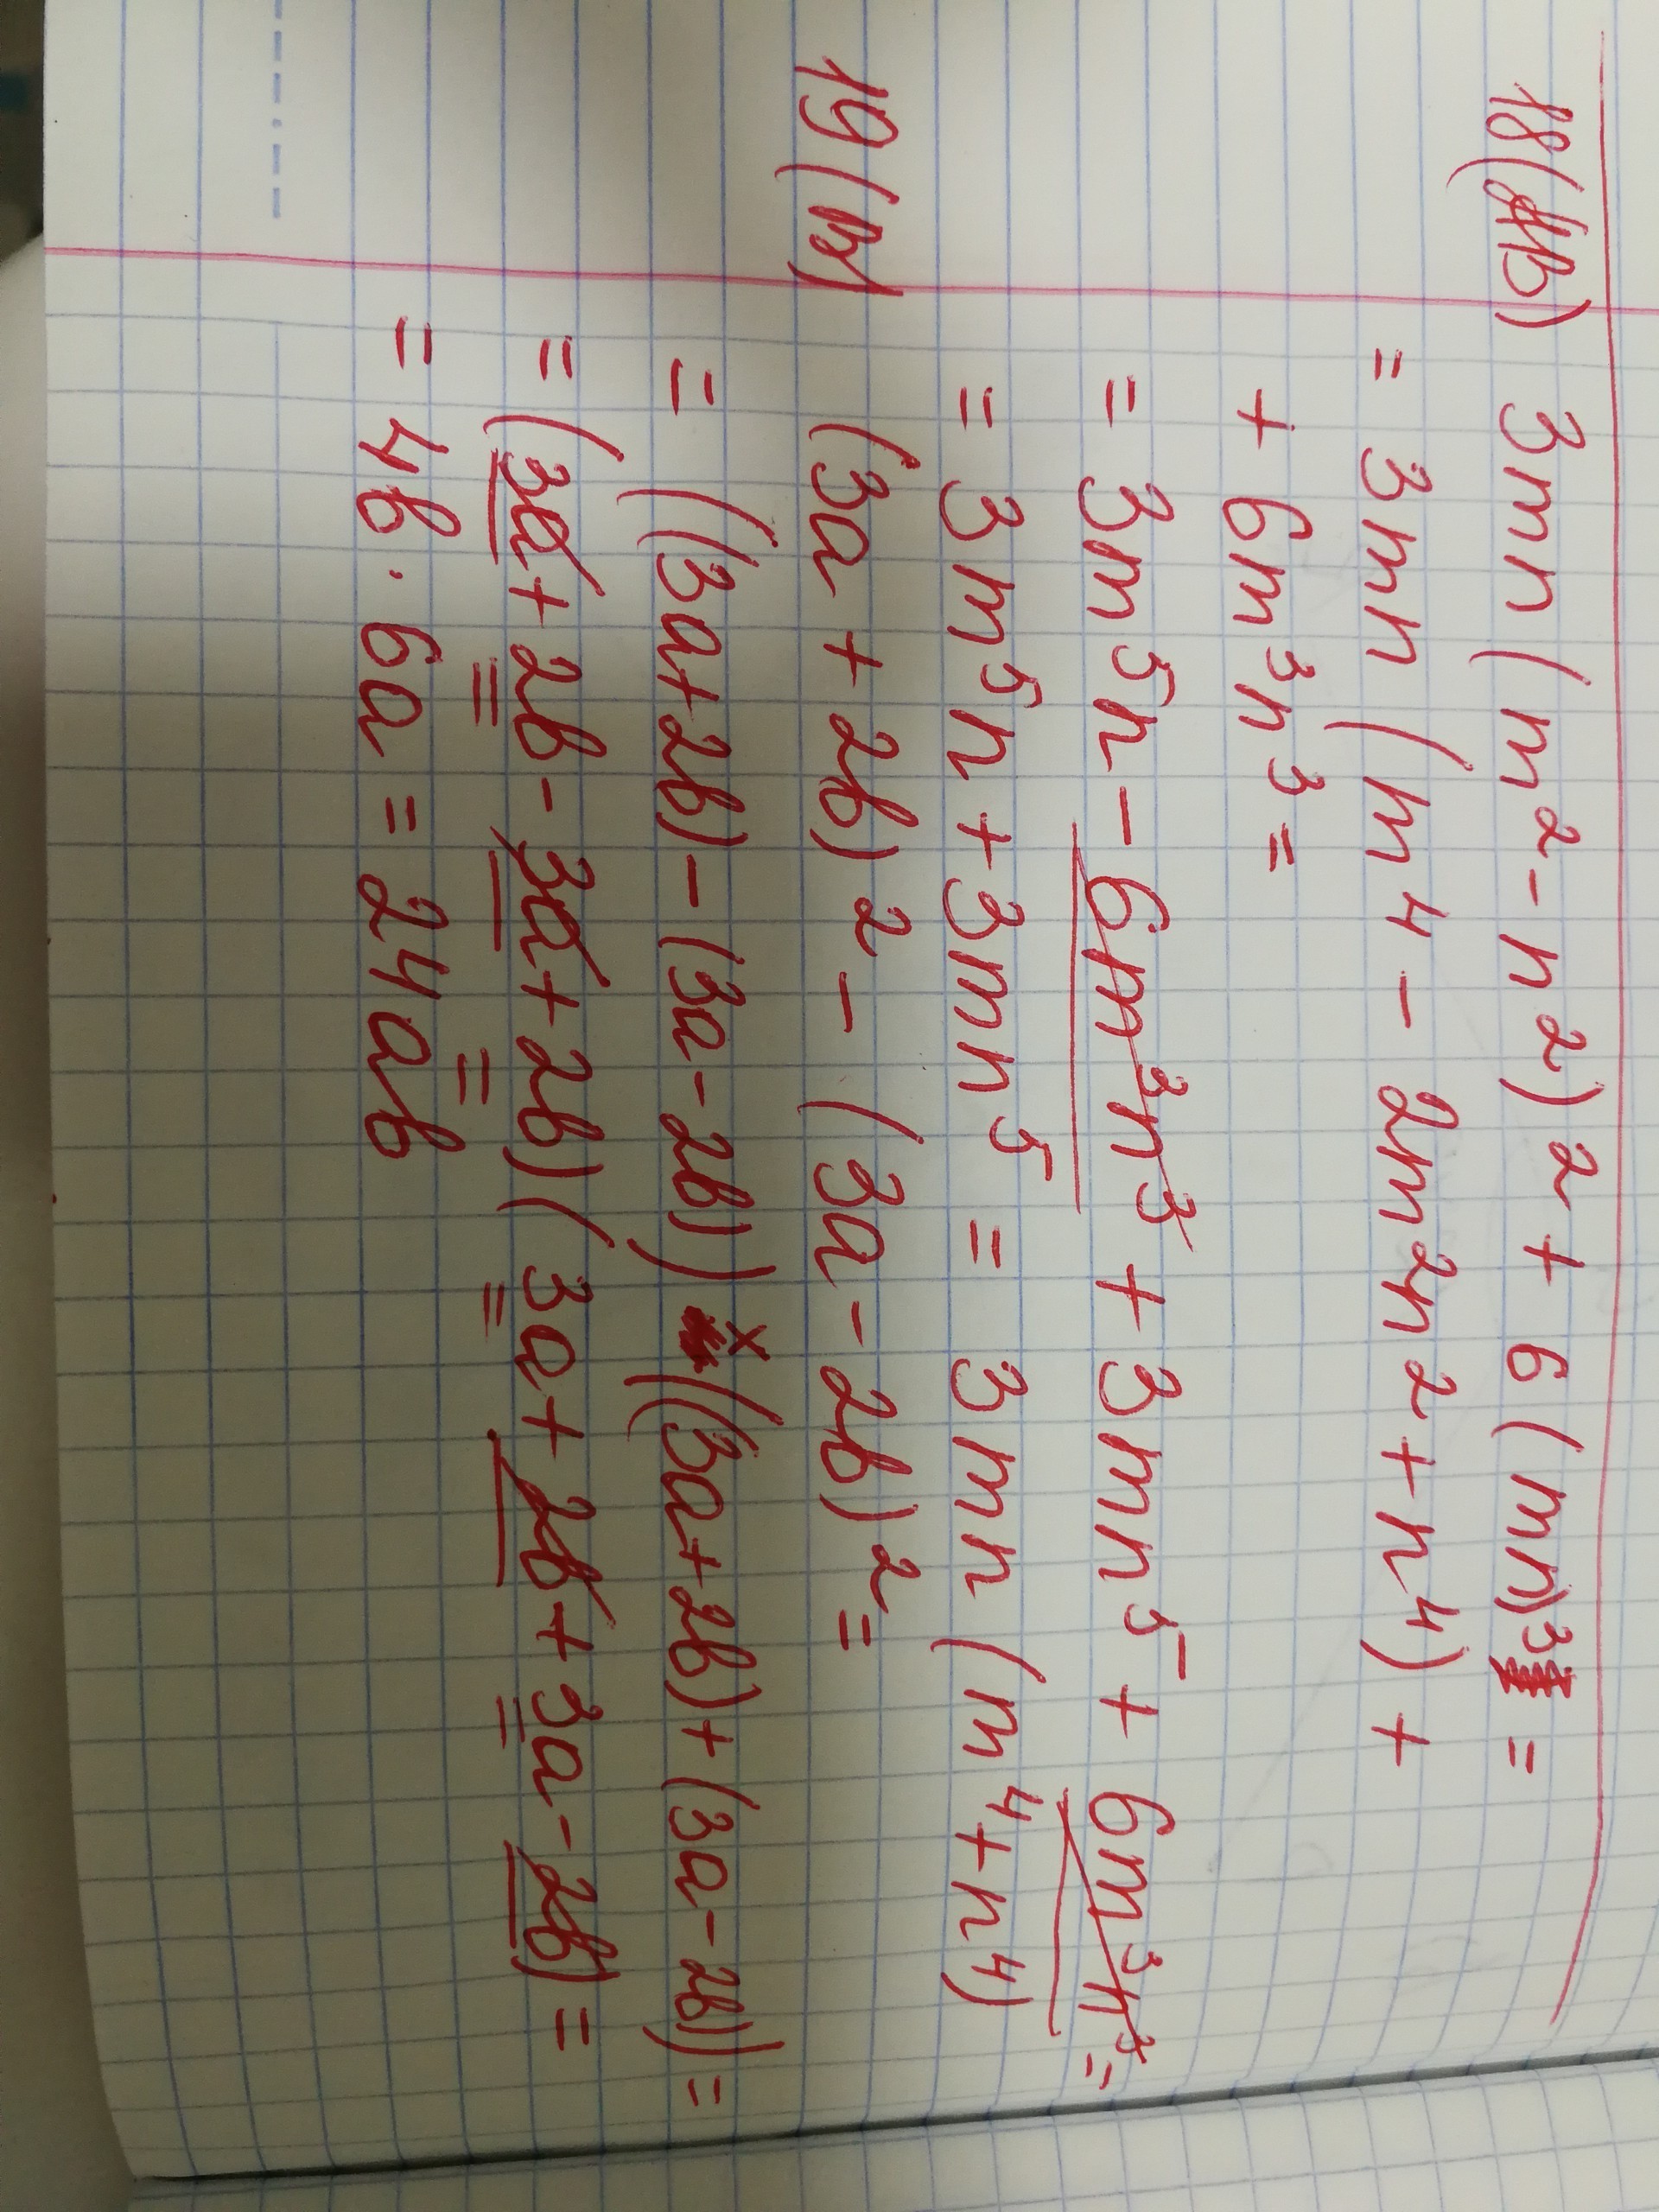 18(в) 3mn(m²-n²)²+6(mn)³=
=3mn(m⁴-2m²n²+n⁴)+
+6m³n³=
=3m⁵n-6m³n³+3mn⁵+6m³n³=
=3m⁵n+3mn⁵=3mn(m⁴+n⁴)
19(в)
(3a+2b)²-(3a-2b)²=
=((3a+2b)-(3a-2b))×((3a+2b)+(3a-2b))=
=(3a+2b-3a+2b)(3a+2b+3a-2b)=
=4b·6a=24ab